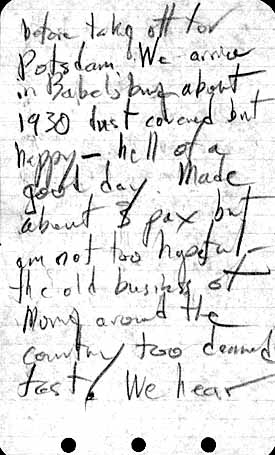 before take off for
Potsdam. We arrive
in Babelsburg about
1930 dust covered but
happy - hell of a
good day. Made
about 8 pax but
am not too hopeful -
the old business of
moving around the
country too damned
fast. We hear